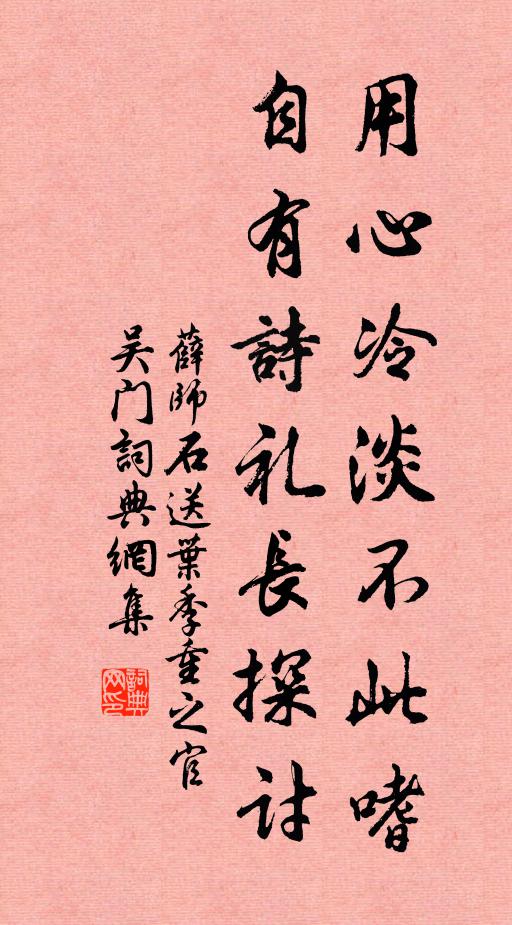 用心冷淡不此嗜
自有詩礼長探討
薛師石送葉季重之官
吴門詞典網集
詞典网印